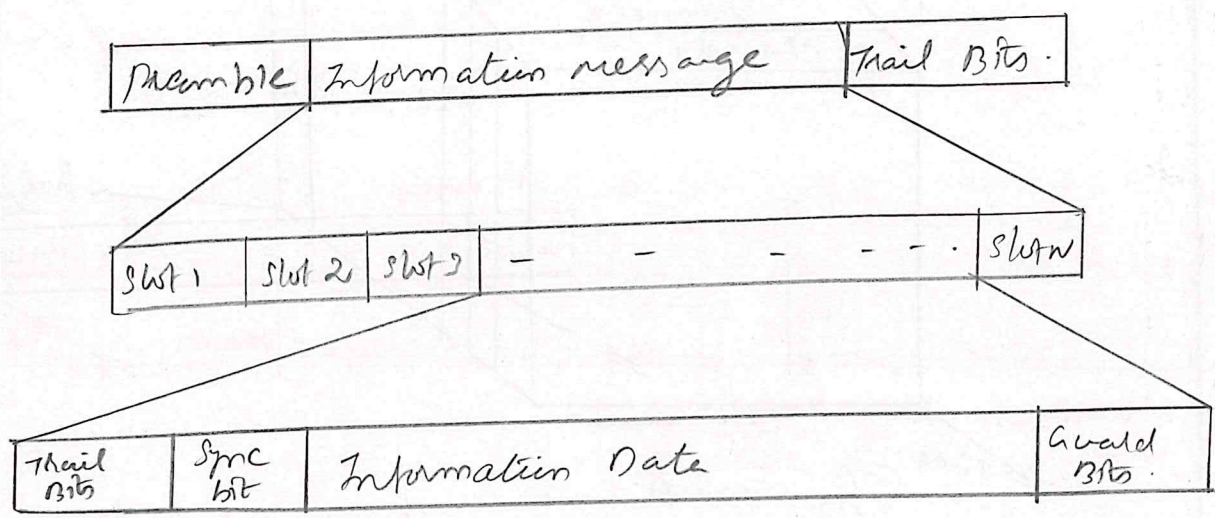 Preamble Information message Trail Bits.
Slot 1 Slot 2 Slot 3 - - - - - . Slot N
Trail Sync Information Data Guard
Bits bit Bits.